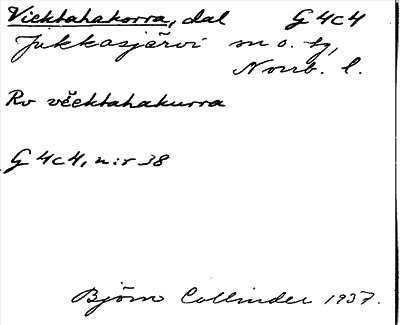 Vicktahakorra, dal G 4c4
Jukkasjärvi sn o. tg,
Norrb. l.
Rv věcktahakurra
G 4c4, n:r 38
Björn Collinder 1937.